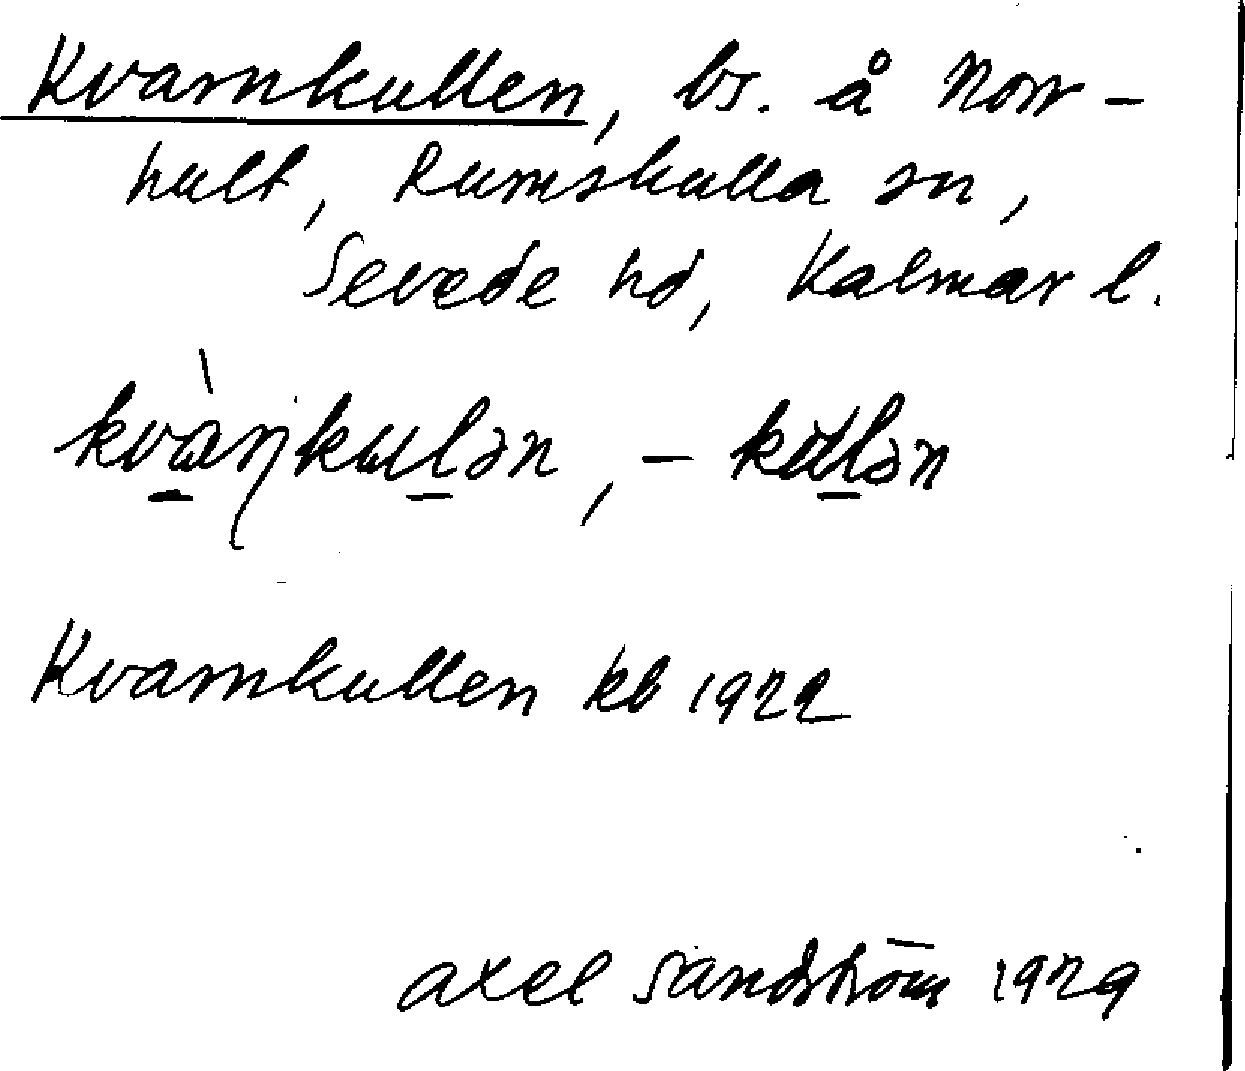 Kvarnkullen, bs. å Norr-
hult, Rumskulla sn,
Sevede hd, Kalmar l.
kvàŋkulən, -kulən
Kvarnkullen kb 1922
Axel Sandström 1929